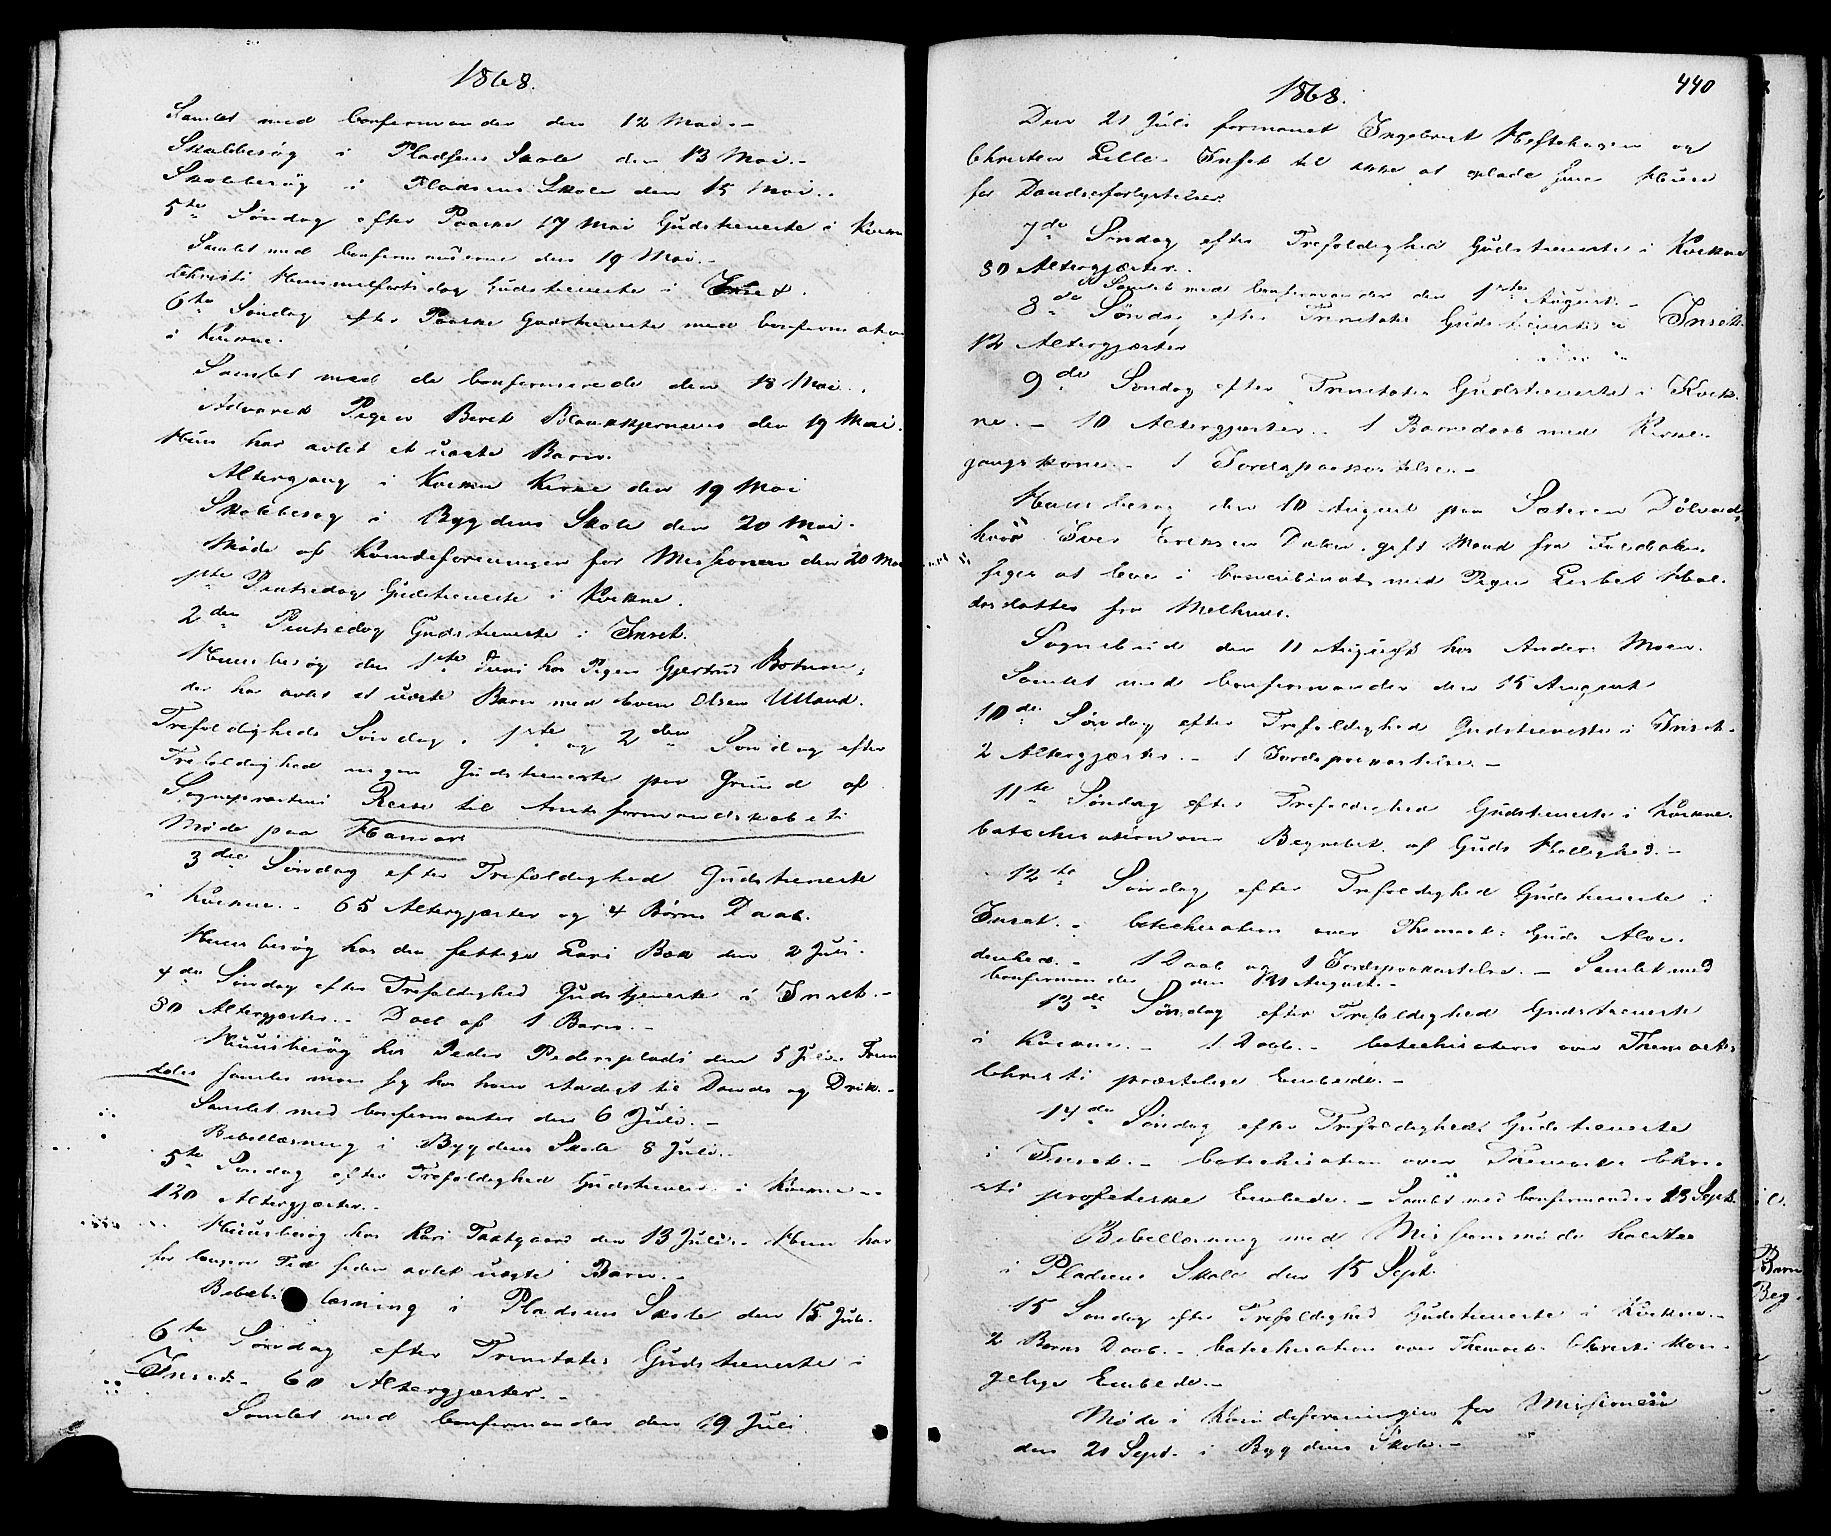 1868.
Samlet med Confirmander den 12 Mai. -
Skolebesøg i Pladsens Skole den 13 Mai. -
Skolebesøg i Pladsens Skole den 15 Mai. -
5te Søndag efter Paaske 17 Mai Gudstieneste i Kvikne
Samlet med Confirmanderne den 19 Mai. -
Christi Himmelfartsdag Gudstieneste i Inset.
6te Søndag efter Paaske Gudstieneste med Confirmation
i Kvikne.
Samlet med de Confirmerede den 18 Mai.
Advaret Pigen Beret den 19 Mai.
Hun har avlet et uægte Barn.
Altergang i Kvikne Kirke den 19 Mai
Skolebesøg i Bygdens Skole den 20 Mai.
Møde af Kvindeforeningen for Missionen den 20 Mai
1ste Pintsedag Gudstieneste i Kvikne.
2den Pintsedag Gudstieneste i Inset.
Huusbesøg den 1ste Juni hos Pigen Gjertrud
der har avlet et uægte Barn med Even Olsen Utland.
Trefoldigheds Søndag, 1ste og 2den Søndag efter
Trefoldighed ingen Gudstieneste paa Grund af
Sognepræstens Reise til Amtsformandskabets
Møde paa Hamar.
3die Søndag efter Trefoldighed Gudstieneste
i Kvikne. - 65 Altergjæster og 4 Børns Daab.
Huusbesøg hos den fattige Lari Boe den 2 Juli.
4de Søndag efter Trefoldighed Gudstjeneste i Inset. -
80 Altergjæster. - Daab af 1 Barn. -
Huusbesøg hos Peder Pedersplads den 5 Juli.
samles man sig hos ham stadigt til Dands og Drik. -
Samlet med Confirmanter den 6 Juli. -
Bibellæsning i Bygdens Skole 8 Juli. -
5te Søndag efter Trefoldighed Gudstieneste i Kvikne -
120 Altergjæster. -
Huusbesøg hos Kari den 13 Juli. - Hun har
for længere Tid siden avlet uægte Barn. -
læsning i Pladsens Skole den 15 Juli.
6te Søndag efter Trinitatis Gudstieneste i
Inset. - 60 Altergjæster. -
Samlet med Confirmander den 19 Juli.
1868.
440
Den 21 Juli formanet Ingebret og
Christen Lille-Inset til ikke at oplade sine Huse
for Dandseforlystelser.
7de Søndag efter Trefoldighed Gudstieneste i Kvikne
80 Altergjæster.
Samlet med Confirmander den 1ste August. -
8de Søndag efter Trinitatis Gudstieneste i Inset.
12 Altergjæster
9de Søndag efter Trinitatis Gudstieneste i Kvik-
ne. - 10 Altergjæster. - 1 Barnedaab med Kirke-
gangskone. - 1 Jordspaakastelse. -
Huusbesøg den 10 August paa Sæteren
hvor Iver Eriksen gift Mand fra
siges at leve i Concubinat med Pigen Lisbet
datter fra Melhuus.
Sognebud den 11 August hos Anders Moen.
Samlet med Confirmander den 15 August
10de Søndag efter Trefoldighed Gudstieneste i Inset.
2 Altergjæster. - 1 Jordspaakastelse. -
11te Søndag efter Trefoldighed Gudstieneste i Kvikne.
Catechisation over Begrebet af Guds Hellighed. -
12te Søndag efter Trefoldighed Gudstieneste i
Inset. - Catechisation over Themaet: Guds Alvi-
denhed. - 1 Daab og 1 Jordspaakastelse. - Samlet med
Confirmander den August. -
13de Søndag efter Trefoldighed Gudstieneste
i Kvikne. - 1 Daab. - Catechisation over Themaet:
Christi præstelige Embede. -
14de Søndag efter Trefoldighed Gudstieneste
i Inset. - Catechisation over Themaet: Chri-
sti profetiske Embede. - Samlet med Confirmander 13 Sept.
Bibellæsning med Missionsmøde holdtes
i Pladsens Skole den 15 Sept.
15 Søndag efter Trefoldighed Gudstieneste i Kvikne. -
2 Børns Daab. - Catechisation over Themaet: Christi kon-
gelige Embede. -
Møde i Kvindeforeningen for Missionen
den 21 Sept. i Bygdens Skole. -
Barn
Beg